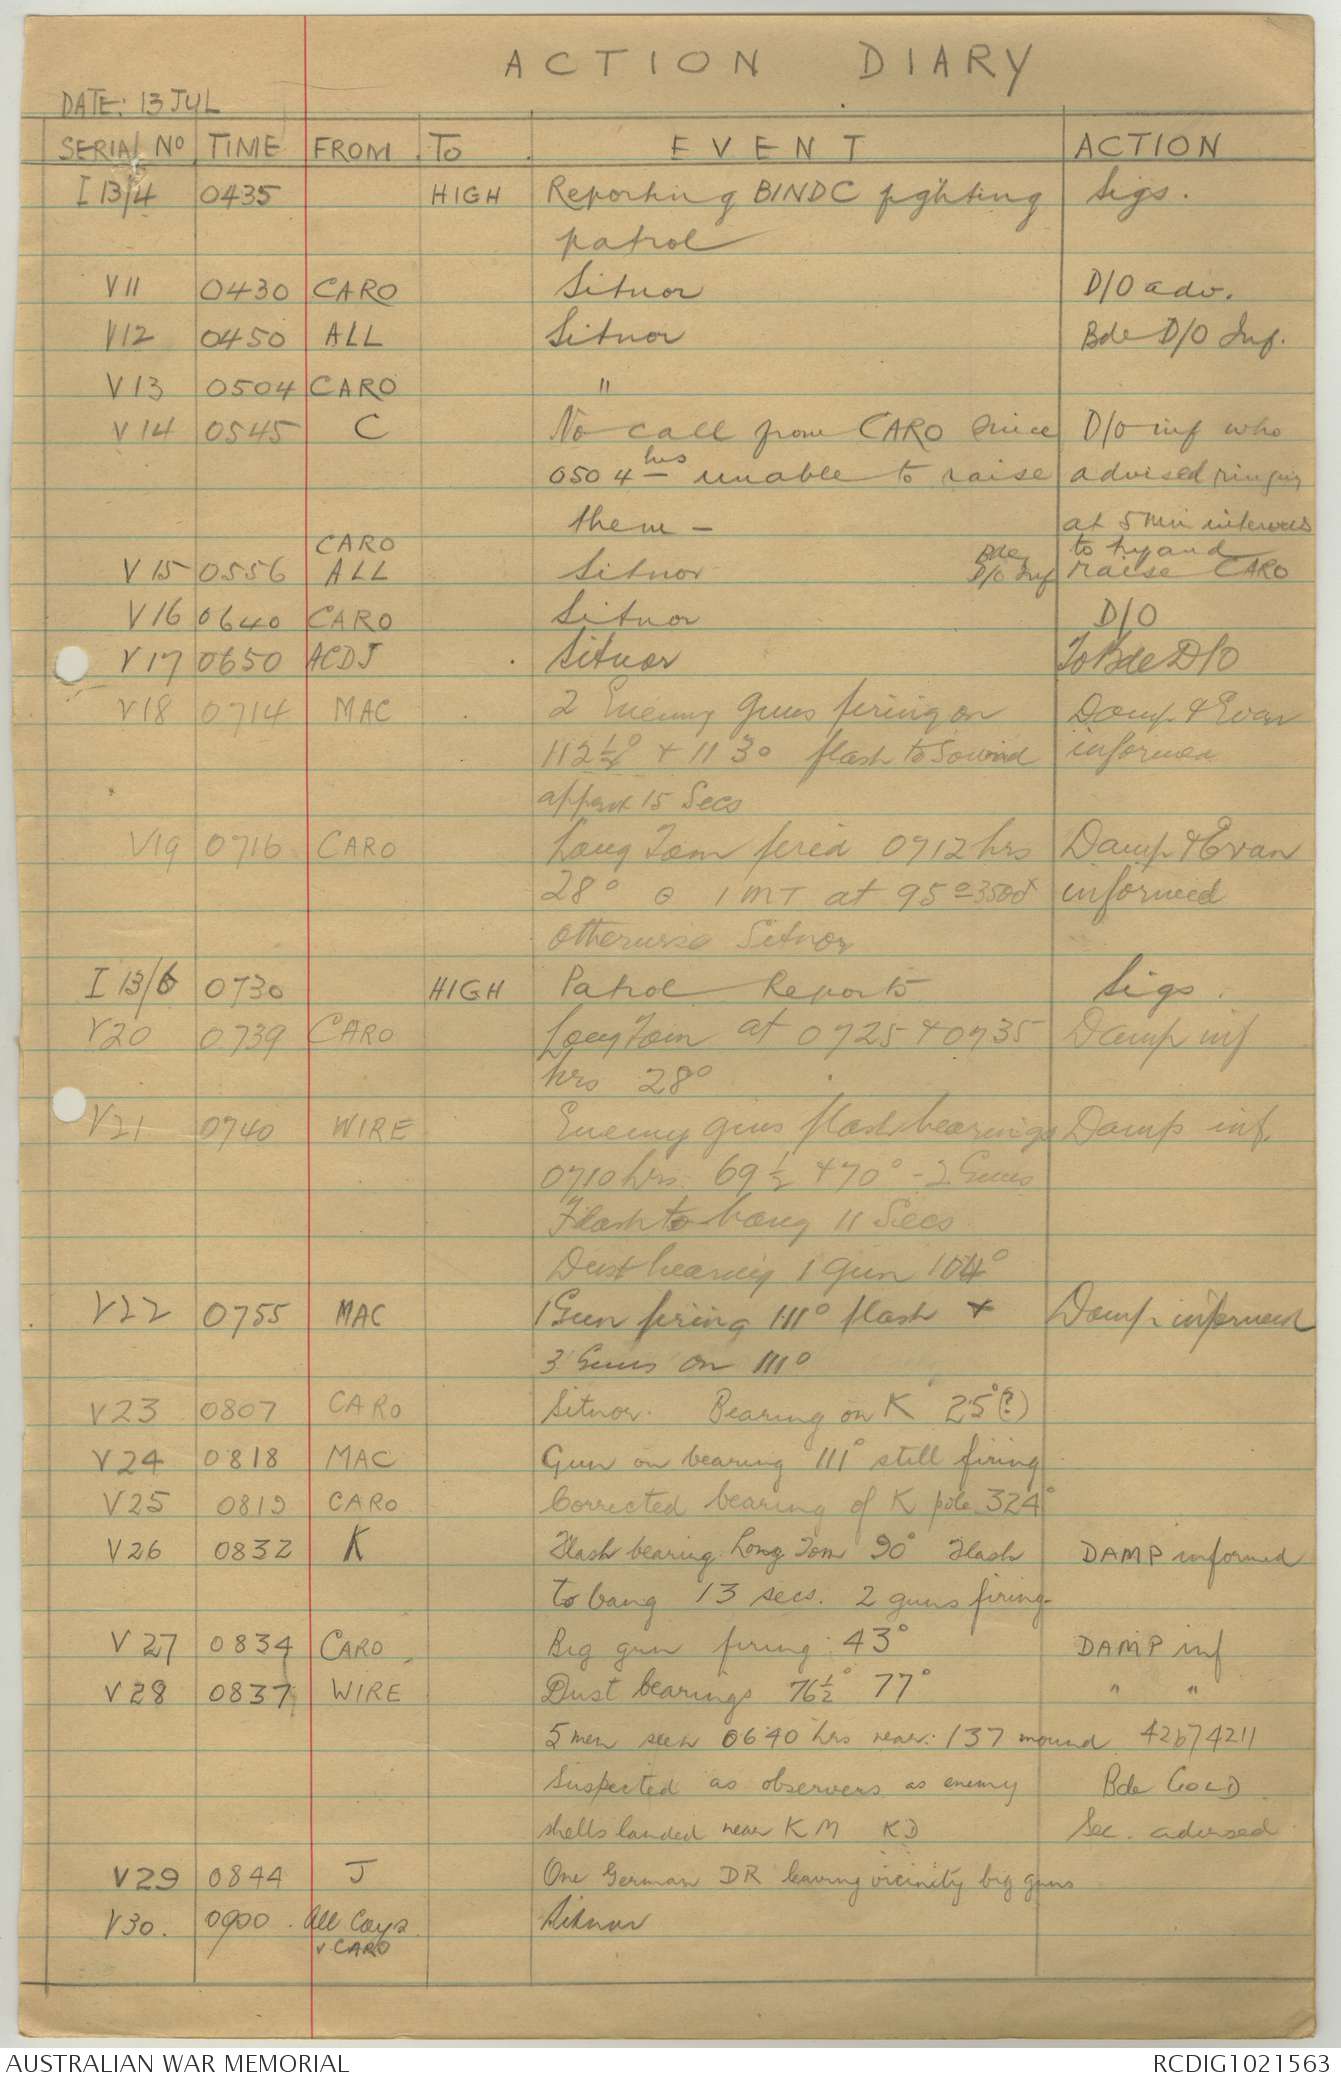 ACTION DIARY
DATE: 13 JUL
SERIAL No TIME FROM To EVENT ACTION
I 13/4 0435 HIGH Reporting BINDC fighting Sigs.
patrol
V11 0430 CARO Sitnor D/O adv.
V12 0450 ALL Sitnor Bde D/O Inf.
V13 0504 CARO "
V14 0545 C No call from CARO since D/O inf who
0504 hrs unable to raise advised ringing
them - at 5 min intervals
to try and
V15 0556 CARO ALL Sitnor Bde D/O Inf raise CARO
V16 0640 CARO Sitnor D/O
V17 0650 ACDJ Sitnor To Bde D/O
V18 0714 MAC 2 Enemy Guns firing on Damp & Evan
112½° + 113° flash to Sound informed
approx 15 Secs
V19 0716 CARO Long Tom fired 0712 hrs Damp & Evan
28° @ 1 MT at 95° 3500x informed
otherwise Sitnor
I 13/6 0730 HIGH Patrol Reports Sigs.
V20 0739 CARO Long Tom at 0725 + 0735 Damp inf
hrs 28°
V21 0740 WIRE Enemy guns flash bearings Damp inf.
0710 hrs. 69½ + 70° - 2 Guns
Flash to bang 11 Secs
Dust bearing 1 gun 104°
V22 0755 MAC 1 Gun firing 111° flash + Damp informed
3 Guns on 111°
V23 0807 CARO Sitnor. Bearing on K 25°(?)
V24 0818 MAC Gun on bearing 111° still firing
V25 0819 CARO Corrected bearing of K pole 324°
V26 0832 K Flash bearing Long Tom 90° Flash DAMP informed
to bang 13 secs. 2 guns firing.
V27 0834 CARO Big gun firing 43° DAMP inf
V28 0837 WIRE Dust bearings 76½° 77° " "
5 men seen 0640 hrs near 137 mound 42674211
Suspected as observers as enemy Bde GOLD
shells landed near KM KD Sec. advised
V29 0844 J One German DR leaving vicinity big guns
V30. 0900. All Coys Sitnor
& CARO
AUSTRALIAN WAR MEMORIAL RCDIG1021563